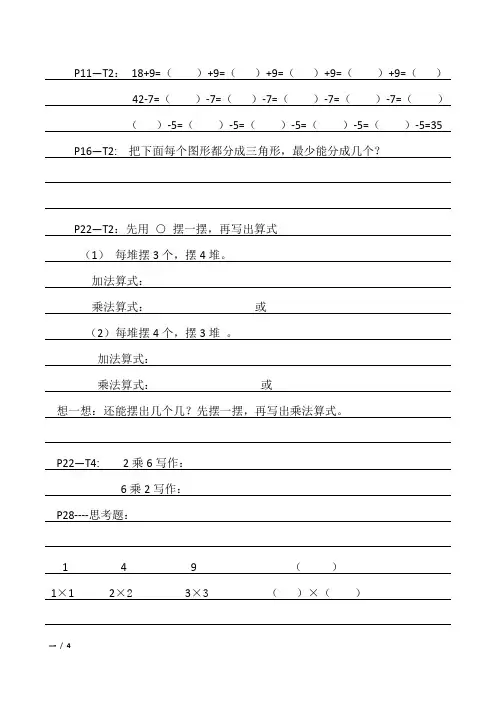 P11—T2： 18+9=（　　）+9=（　　）+9=（　　）+9=（　　）+9=（　　）
42-7=（　　）-7=（　　）-7=（　　）-7=（　　）-7=（　　）
（　　）-5=（　　）-5=（　　）-5=（　　）-5=（　　）-5=35
P16—T2: 把下面每个图形都分成三角形，最少能分成几个？
P22—T2：先用 〇 摆一摆，再写出算式
（1） 每堆摆 3 个，摆 4 堆。
加法算式：
乘法算式：　　　　　　　　或
（2）每堆摆 4 个，摆 3 堆 。
加法算式：
乘法算式：　　　　　　　　或
想一想：还能摆出几个几？先摆一摆，再写出乘法算式。
P22—T4: 2 乘 6 写作：
6 乘 2 写作：
P28----思考题：
1　　　　4　　　　9　　　　（　　）
1×1　　　2×2　　　3×3　　　（　　）×（　　）
一 / 4